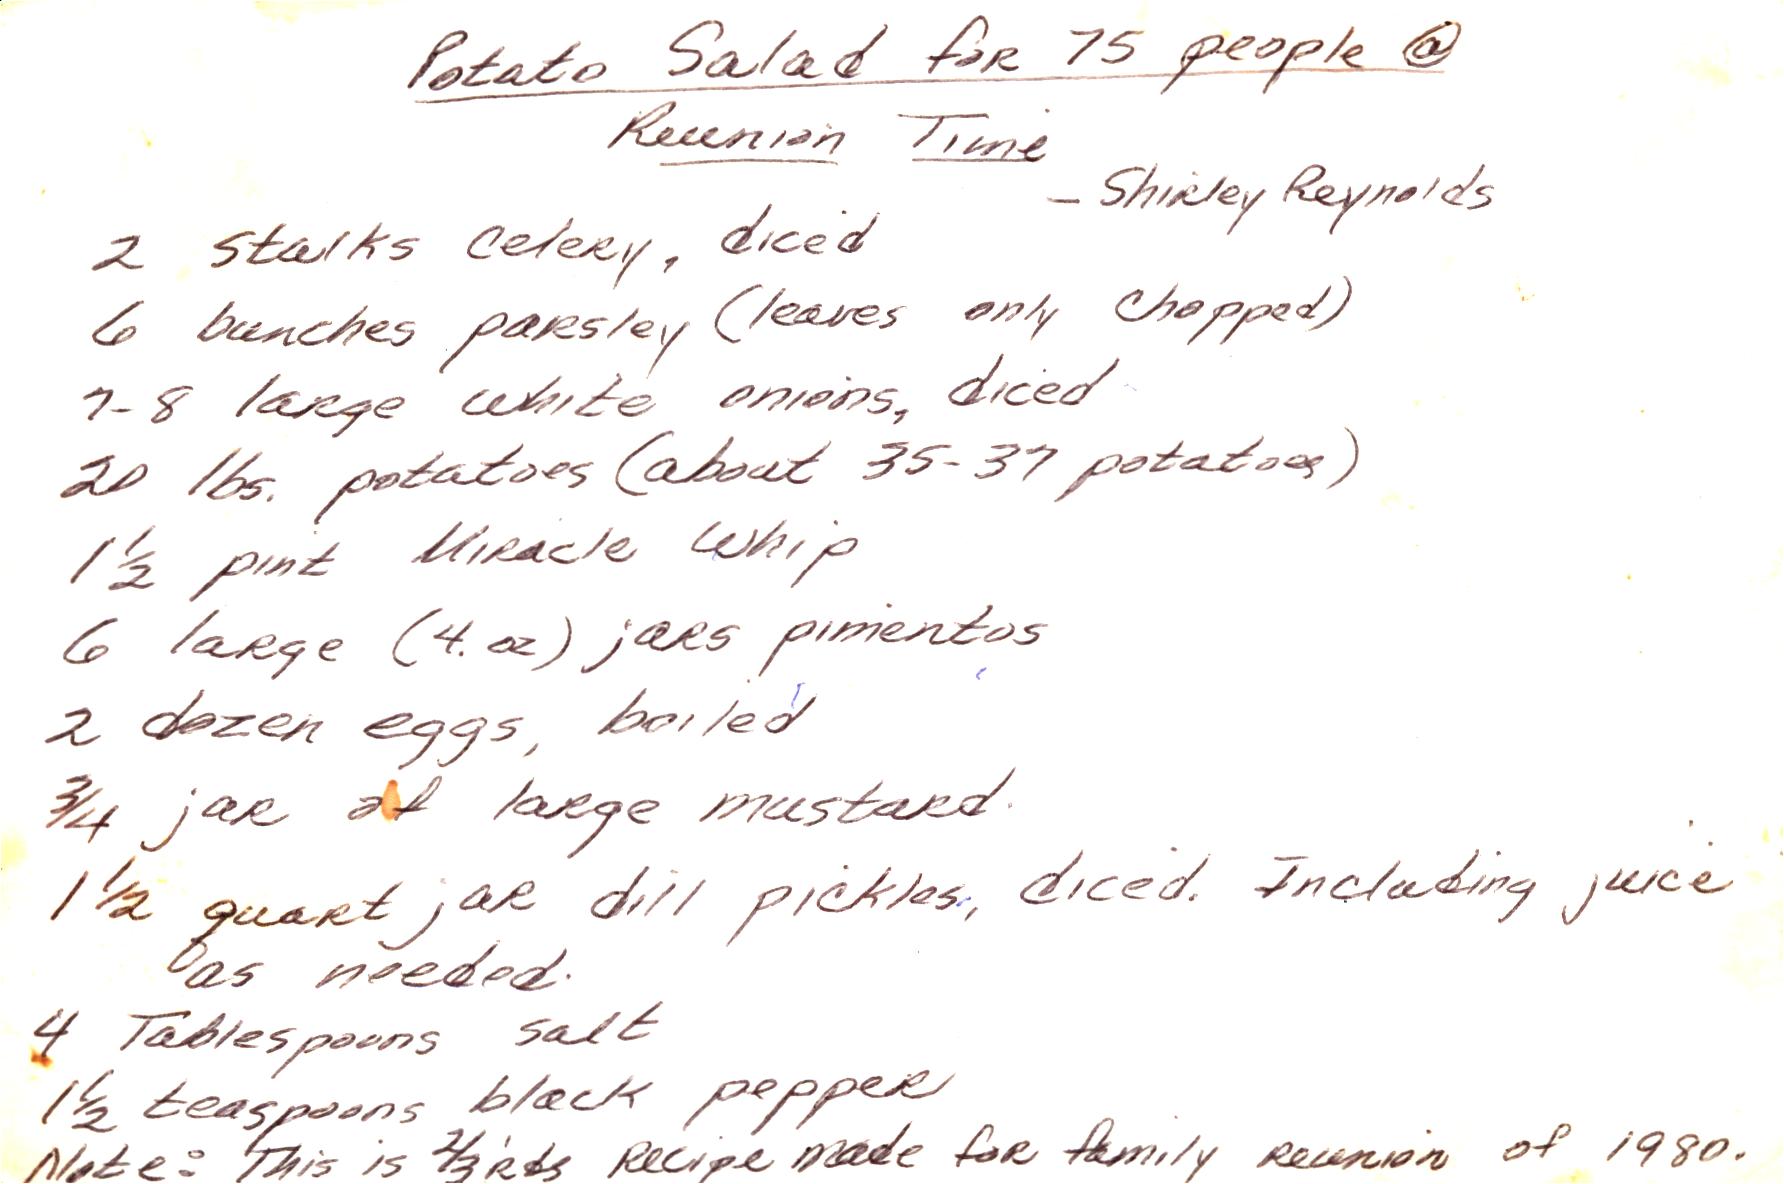 Potato Salad for 75 people @
Reunion Time
- Shirley Reynolds
2 stalks celery, diced
6 bunches parsley (leaves only chopped)
7-8 large white onions, diced
20 lbs. potatoes (about 35-37 potatoes)
1 1/2 pint Miracle Whip
6 large (4. oz) jars pimentos
2 dozen eggs, boiled
3/4 jar of large mustard.
1 1/2 quart jar dill pickles, diced. Including juice
as needed.
4 Tablespoons salt
1 1/2 teaspoons black pepper
Note: This is 2/3rds recipe made for family reunion of 1980.